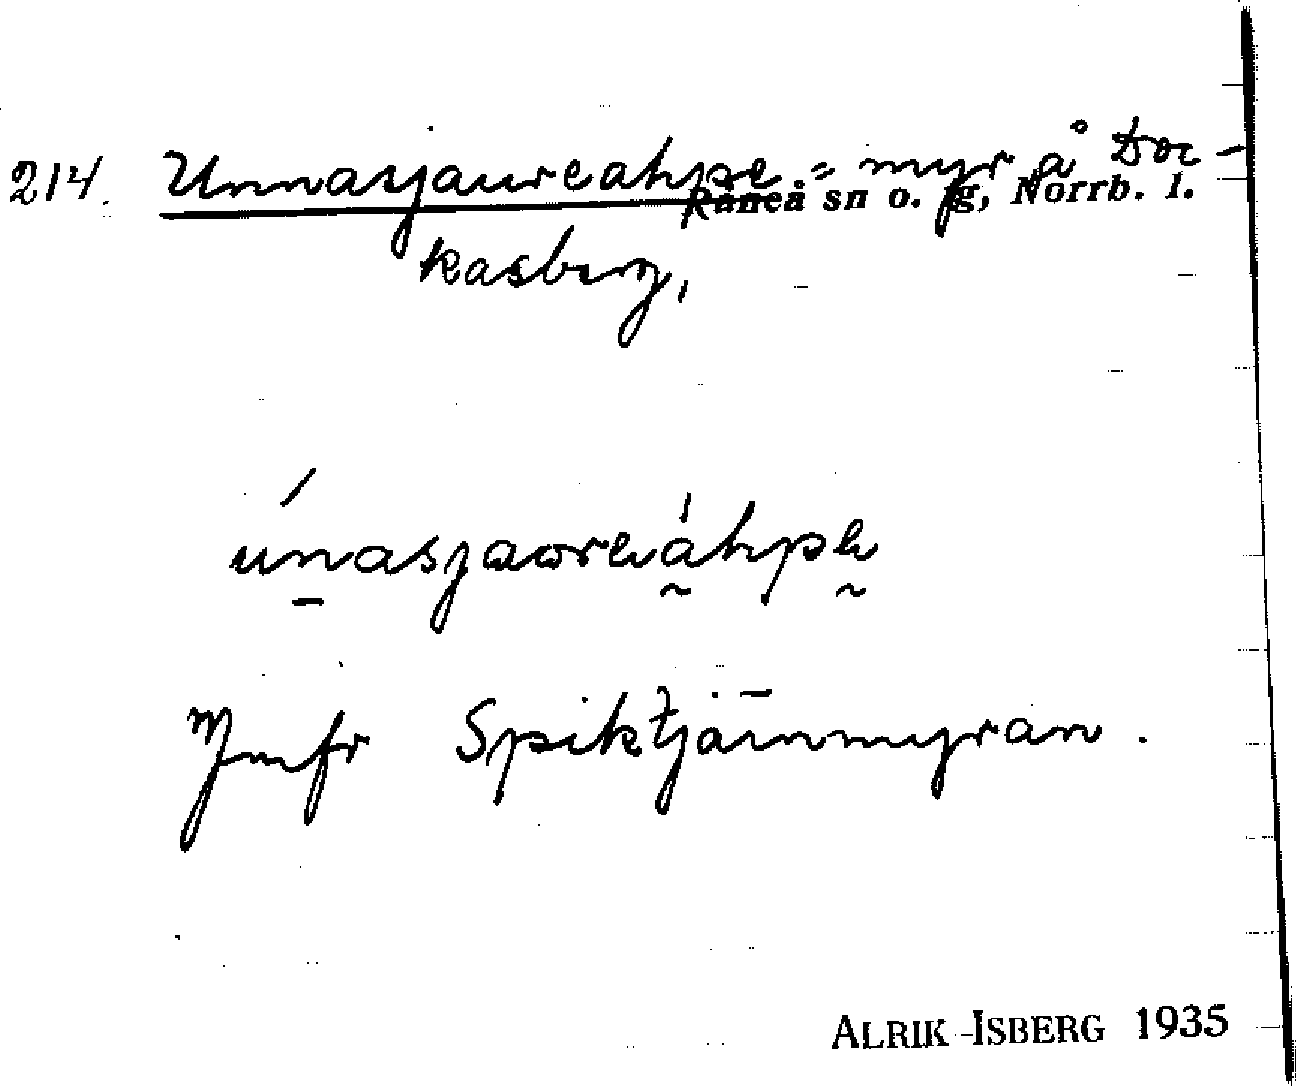 214. Unnasjaureahpe = myr å Doc-
Råneå sn o. sg, Norrb. l.
kasberg,
únasjaoreáhpe
Jmfr Spiktjärnmyran.
ALRIK ISBERG 1935